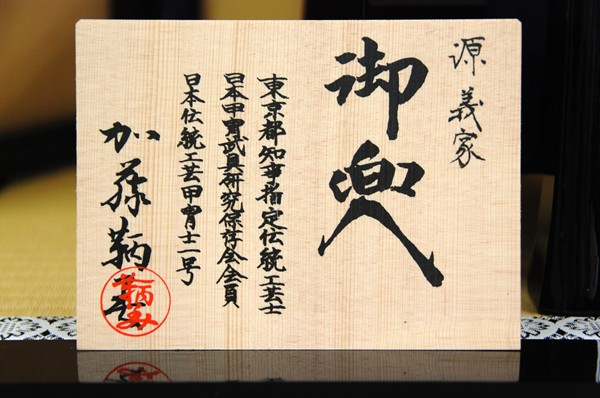 源義家
御兜
東京都知事指定伝統工芸士
日本甲冑武具研究保存会会員
日本伝統工芸甲冑士一号
加藤鞆美
鞆美